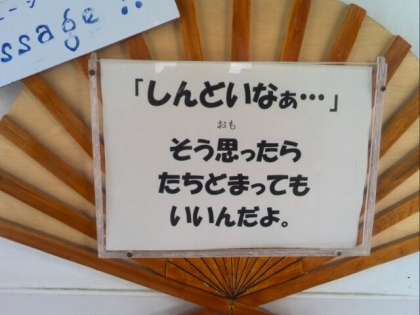 ssage !!
「しんどいなぁ…」
おも
そう思ったら
たちどまっても
いいんだよ。